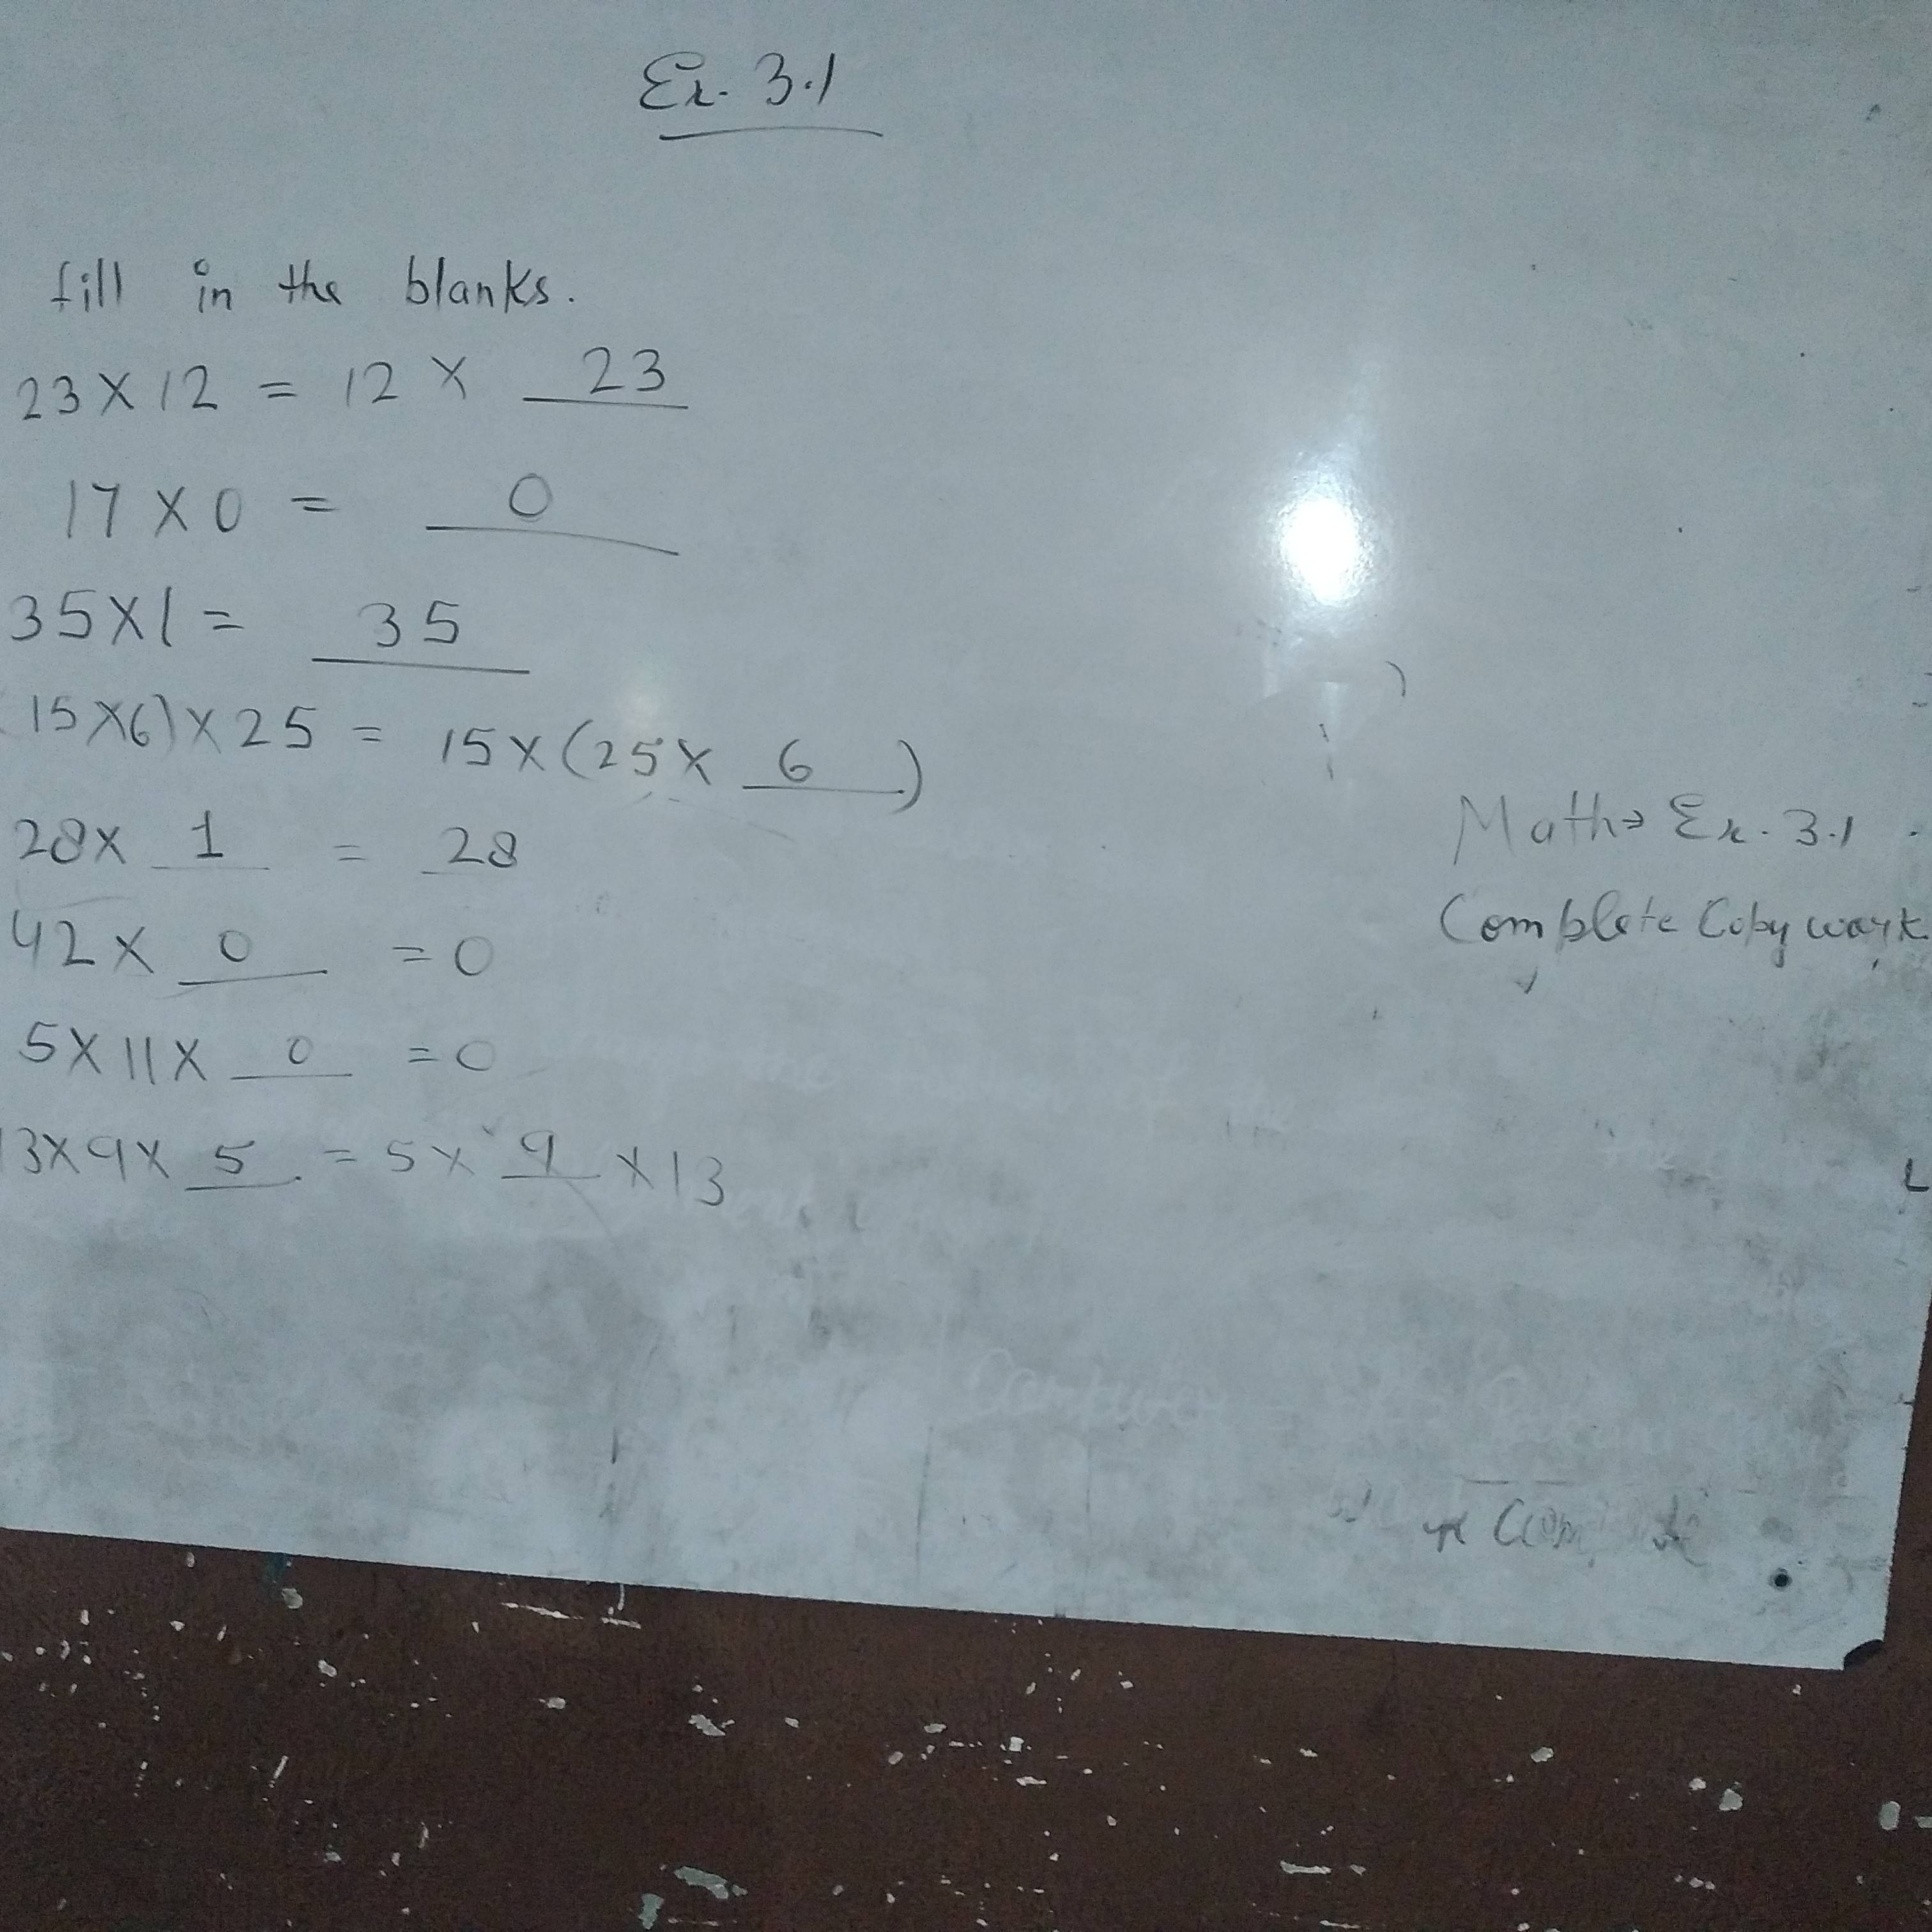 Ex. 3.1
fill in the blanks.
23 X 12 = 12 X 23
17 X 0 = 0
35 X 1 = 35
15 X 6) X 25 = 15 X (25 X 6)
28 X 1 = 28
42 X 0 = 0
5 X 11 X 0 = 0
13 X 9 X 5 = 5 X 9 X 13
Math → Ex. 3.1
Complete Copy work